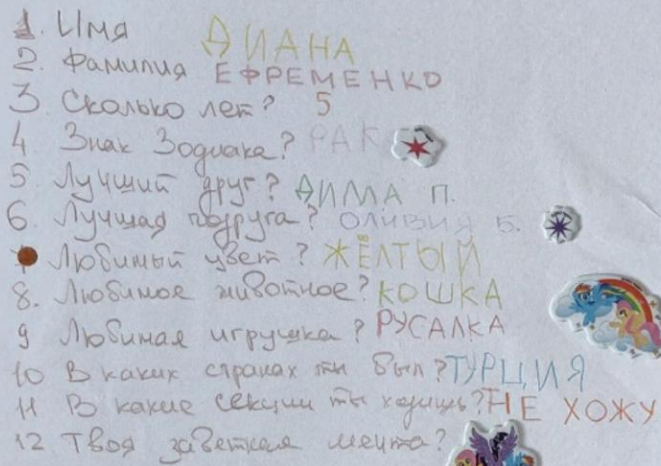 1. Имя ДИАНА
2. Фамилия ЕФРЕМЕНКО
3 Сколько лет? 5
4 Знак Зодиака? РАК
5. Лучший друг? ДИМА П.
6. Лучшая подруга? ОЛИВИЯ Б.
Любимый цвет? ЖЁЛТЫЙ
8. Любимое животное? КОШКА
9 Любимая игрушка? РУСАЛКА
10 В каких странах ты был? ТУРЦИЯ
11 В какие секции ты ходишь? НЕ ХОЖУ
12 Твоя заветная мечта?